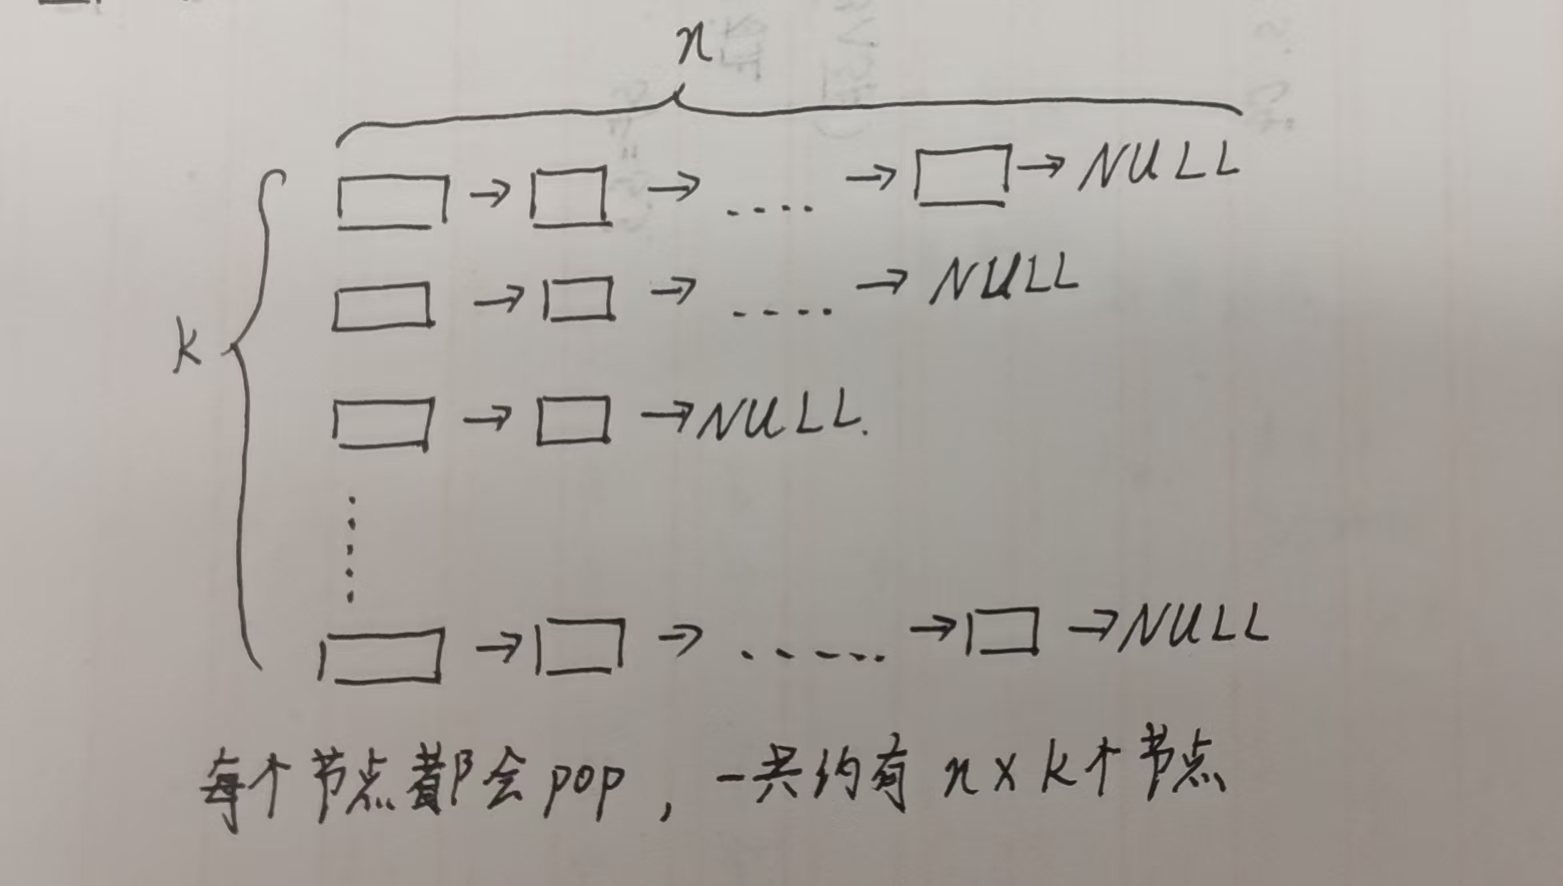 n
→ → .... → → NULL
→ → ..... → NULL
k
→ → NULL.
→ → ...... → → NULL
每个节点都会pop，一共约有 n x k个节点